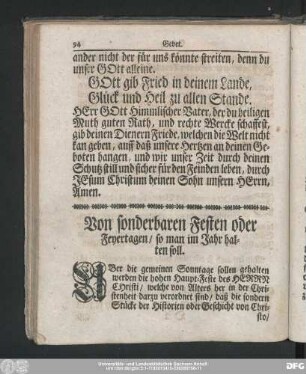 94 Gebet.
ander nicht der für uns könnte streiten, denn du
unser GOtt alleine.
GOtt gib Fried in deinem Lande,
Glück und Heil zu allen Stande.
HErr GOtt Himmlischer Vater, der du heiligen
Muth guten Rath, und rechte Wercke schaffest,
gib deinen Dienern Friede, welchen die Welt nicht
kan geben, auff daß unsere Hertzen an deinen Ge-
boten hangen, und wir unser Zeit durch deinen
Schutz still und sicher für den Feinden leben, durch
JEsum Christum deinen Sohn unsern HErrn,
Amen.
Von sonderbaren Festen oder
Feyertagen/ so man im Jahr hal-
ten soll.
UBer die gemeinen Sonntage sollen gehalten
werden die hohen Haupt-Feste des HERRN
CHristi/ welche von Alters her in der Chri-
stenheit darzu verordnet sind/ daß die sondern
Stücke der Historien oder Geschicht von Chri-
sto/